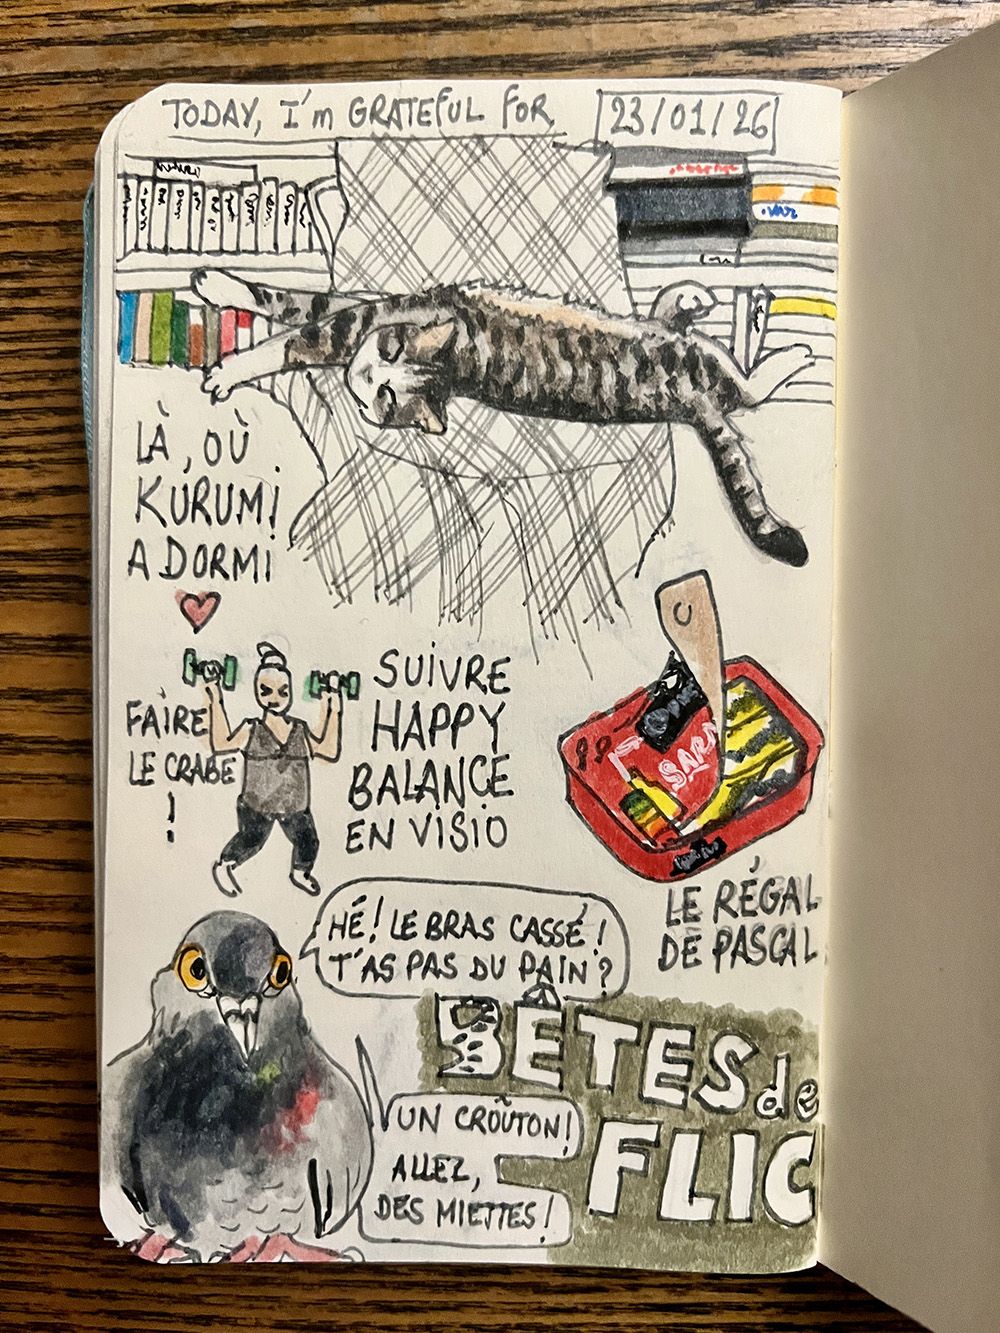 TODAY, I'm GRATEFUL FOR
23/01/26
LÀ, OÙ
KURUMI
A DORMI
FAIRE
LE CRABE
!
SUIVRE
HAPPY
BALANCE
EN VISIO
SARD
LE RÉGAL
DE PASCAL
HÉ! LE BRAS CASSÉ!
T'AS PAS DU PAIN?
BÊTES de
FLIC
UN CROÛTON!
ALLEZ,
DES MIETTES!